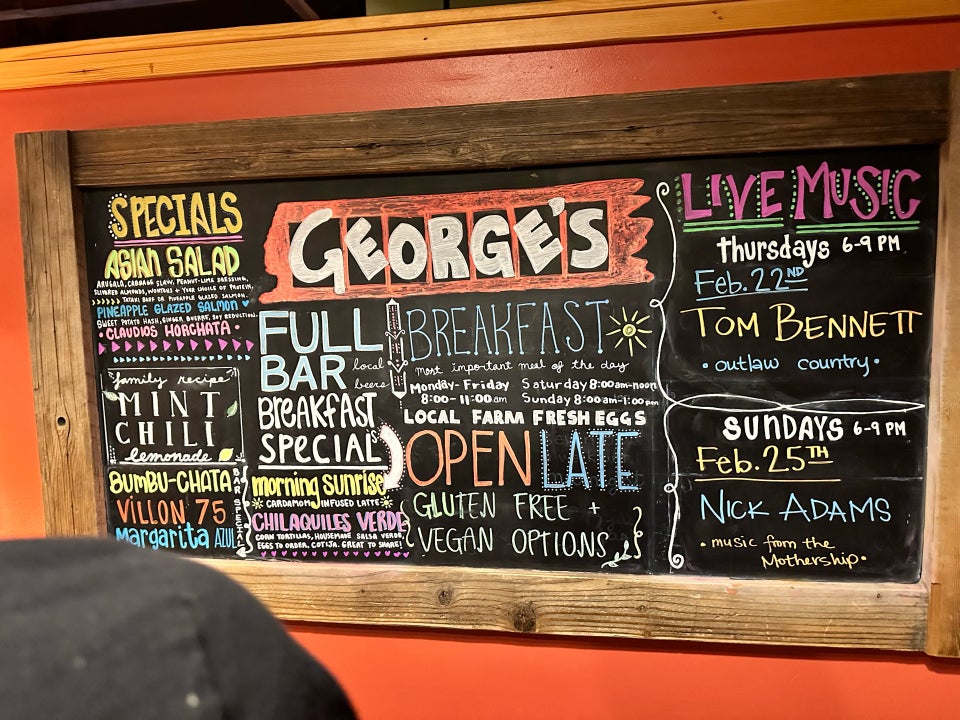 SPECIALS
ASIAN SALAD
ARUGALA, CABBAGE SLAW, PEANUT-LIME DRESSING,
SLIVERED ALMONDS, WONTONS + YOUR CHOICE OF PROTEIN,
TATAKI BEEF OR PINEAPPLE GLAZED SALMON.
PINEAPPLE GLAZED SALMON
SWEET POTATO HASH, GINGER BUERRE, SOY REDUCTION.
CLAUDIOS HORCHATA
family recipe
MINT
CHILI
lemonade
BUMBU-CHATA
VILLON 75
Margarita AZUL
BAR SPECIALS
GEORGE'S
FULL
BAR
local
beers
BREAKFAST
SPECIALS
morning sunrise
CARDAMOM INFUSED LATTE
CHILAQUILES VERDE
CORN TORTILLAS, HOUSEMADE SALSA VERDE,
EGGS TO ORDER, COTIJA. GREAT TO SHARE!
BREAKFAST
most important meal of the day
Monday-Friday
8:00-11:00am
Saturday 8:00am-noon
Sunday 8:00am-1:00pm
LOCAL FARM FRESH EGGS
OPEN LATE
GLUTEN FREE +
VEGAN OPTIONS
LIVE MUSIC
thursdays 6-9 PM
Feb. 22ND
TOM BENNETT
• outlaw country •
SUNDAYS 6-9 PM
Feb. 25TH
NICK ADAMS
• music from the
Mothership •